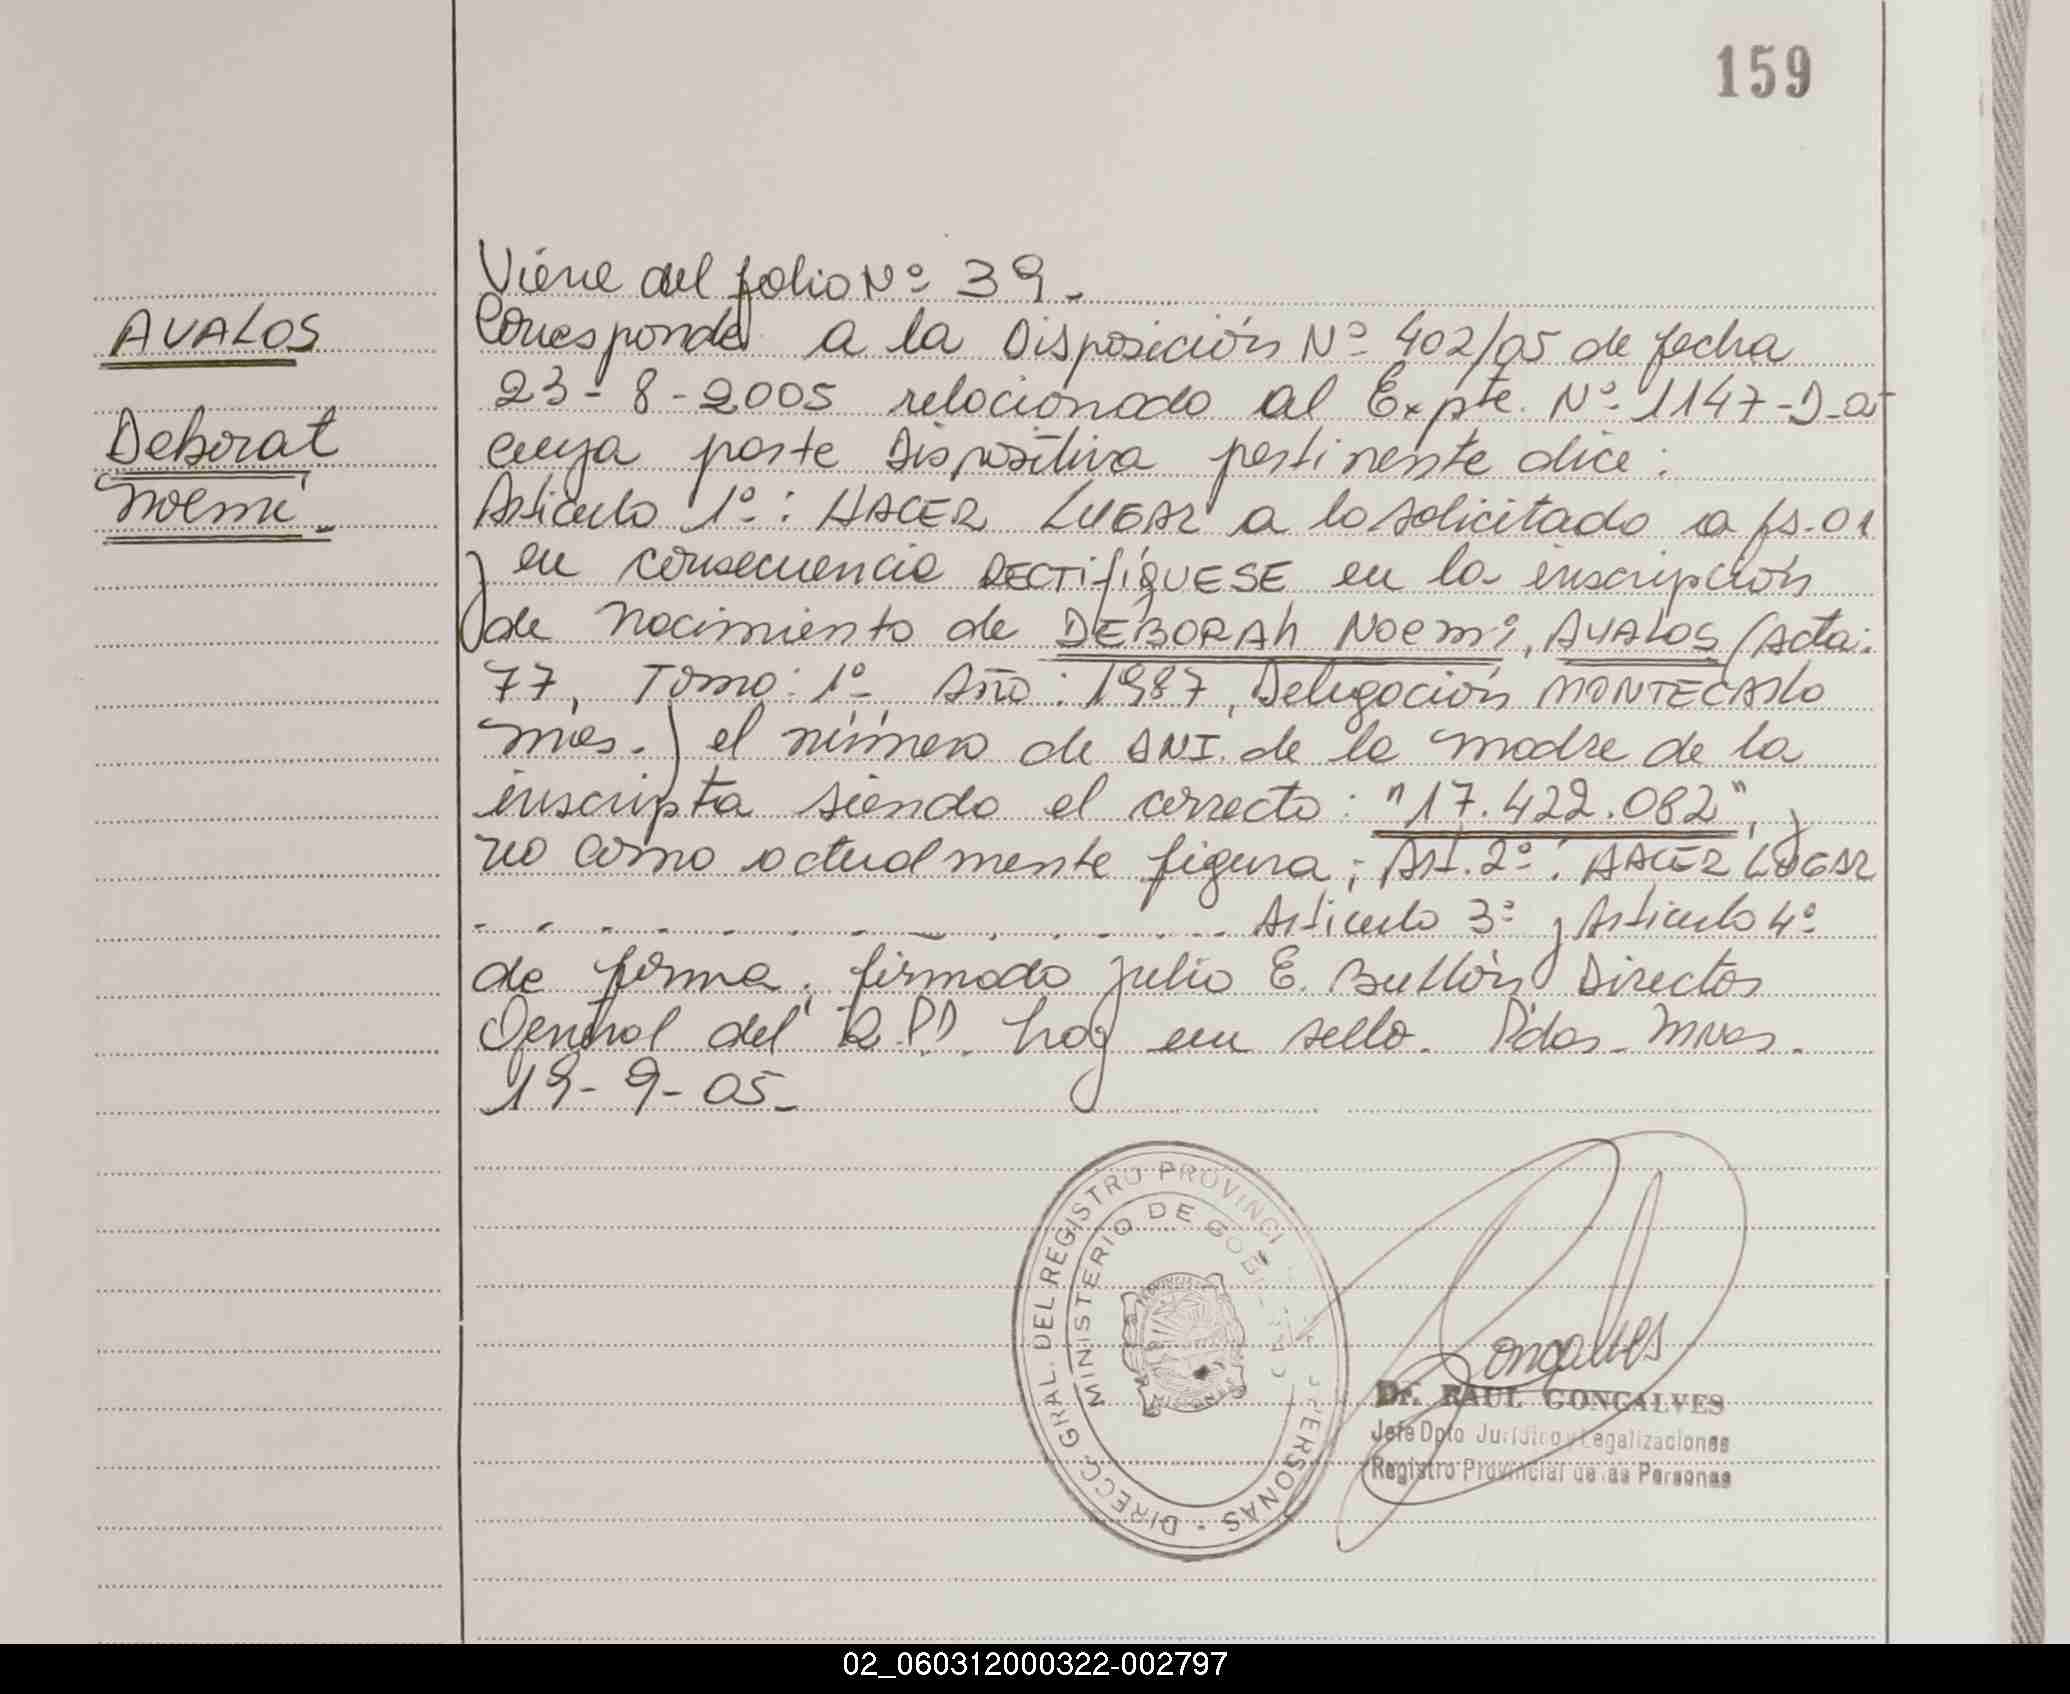 159
Viene del folio Nº 39.
AVALOS
Corresponde a la Disposición Nº 402/05 de fecha
23-8-2005 relacionado al Expte. Nº 1147-D-05
Deborat
cuya parte Dispositiva pertinente dice:
Noemi.-
Articulo 1º: HACER LUGAR a lo solicitado a fs. 01
y en consecuencia RECTIFIQUESE en la inscripción
de nacimiento de DEBORAH Noemi, AVALOS (Acta:
77, Tomo: 1º Año: 1987, Delegación MONTECARlo
mnes.) el número de DNI. de la madre de la
inscripta siendo el correcto: "17.422.082", y
no como actualmente figura; Art. 2º: HACER LUGAR
- - - - - - - - - - - - - - Articulo 3º y Articulo 4º
de forma, firmado Julio E. Bullón Director
General del R.P.P. hay un sello. Pdas. Mnes.
19-9-05.-
DIRECC. GRAL. DEL REGISTRO PROVINCI PERSONAS
MINISTERIO DE GOB
Goncalves
Dr. RAUL GONCALVES
Jefe Dpto Jurídico y Legalizaciones
Registro Provincial de las Personas
02_060312000322-002797